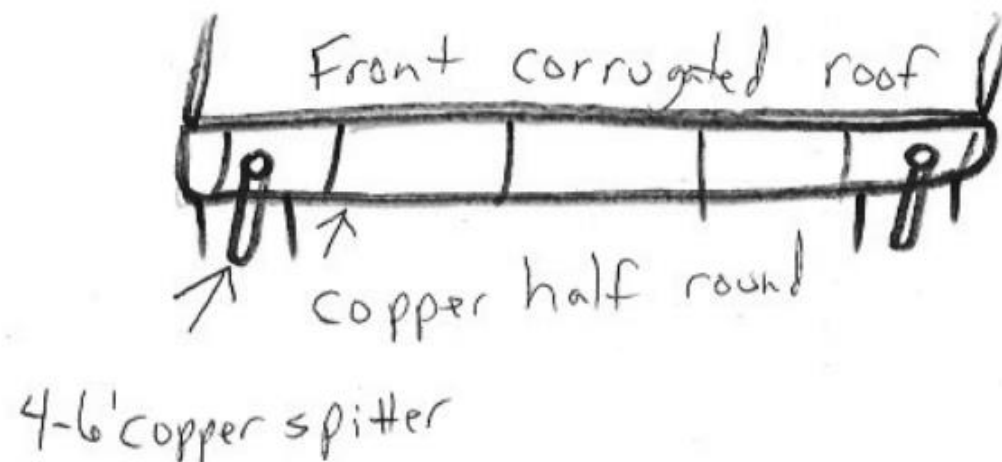 Front corrugated roof
copper half round
4-6' copper spitter